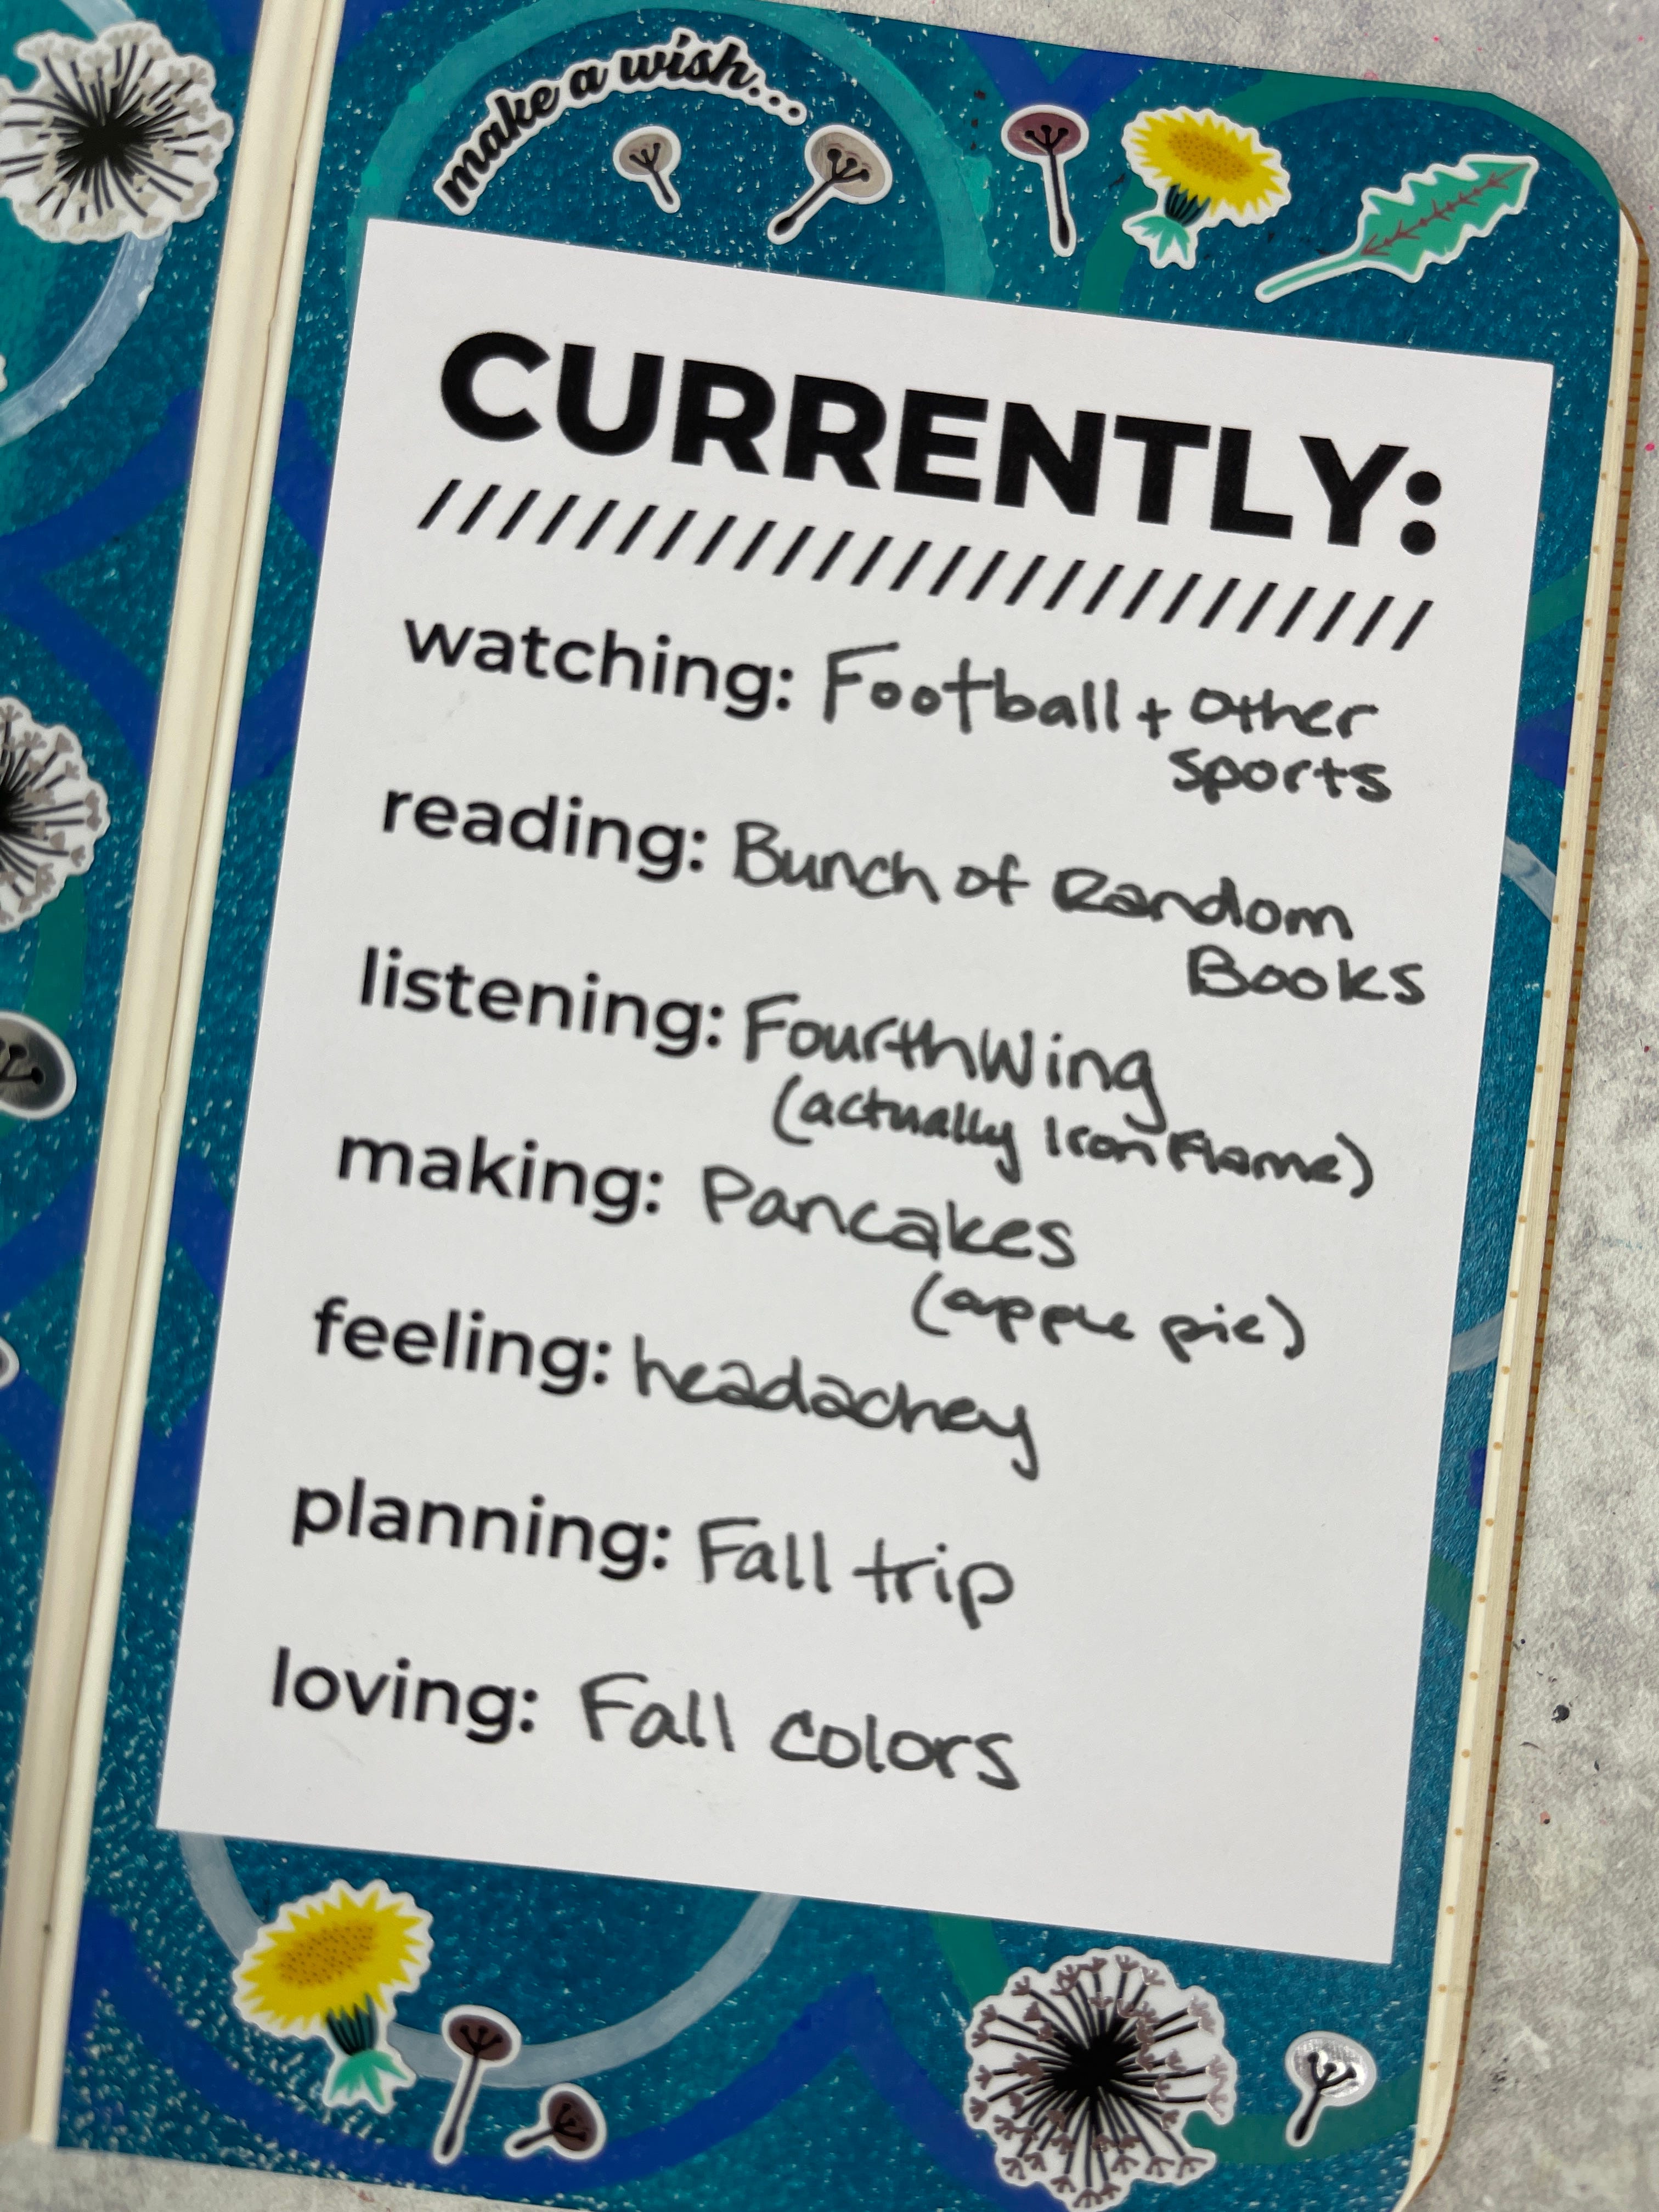 make a wish...
CURRENTLY:
////////////////////////// 
watching: Football + Other
Sports
reading: Bunch of Random
Books
listening: Fourth Wing
(actually Iron Flame)
making: Pancakes
(apple pie)
feeling: headachey
planning: Fall trip
loving: Fall colors